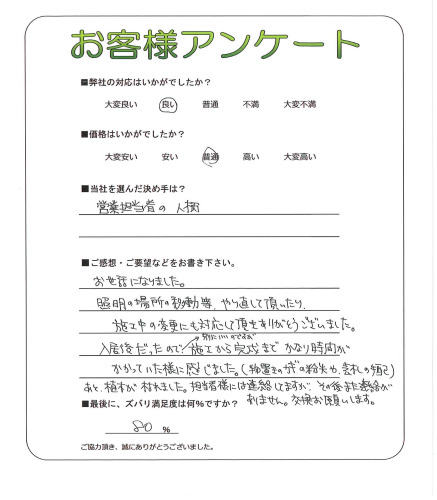 お客様アンケート
■弊社の対応はいかがでしたか？
大変良い 良い 普通 不満 大変不満
■価格はいかがでしたか？
大変安い 安い 普通 高い 大変高い
■当社を選んだ決め手は？
営業担当者の人柄
■ご感想・ご要望などをお書き下さい。
お世話になりました。
照明の場所の移動等、やり直して頂いたり、
施工中の変更にも対応して頂きありがとうございました。
別にいいのですが
入居後だったので施工から完成までかなり時間が
かかっていた様に感じました。(物置きのカギの紛失や、表札の
あと、植木が枯れました。担当者様には連絡してますが、その後まだ連絡が
ありません。交換お願いします。
■最後に、ズバリ満足度は何%ですか？
80 %
ご協力頂き、誠にありがとうございました。